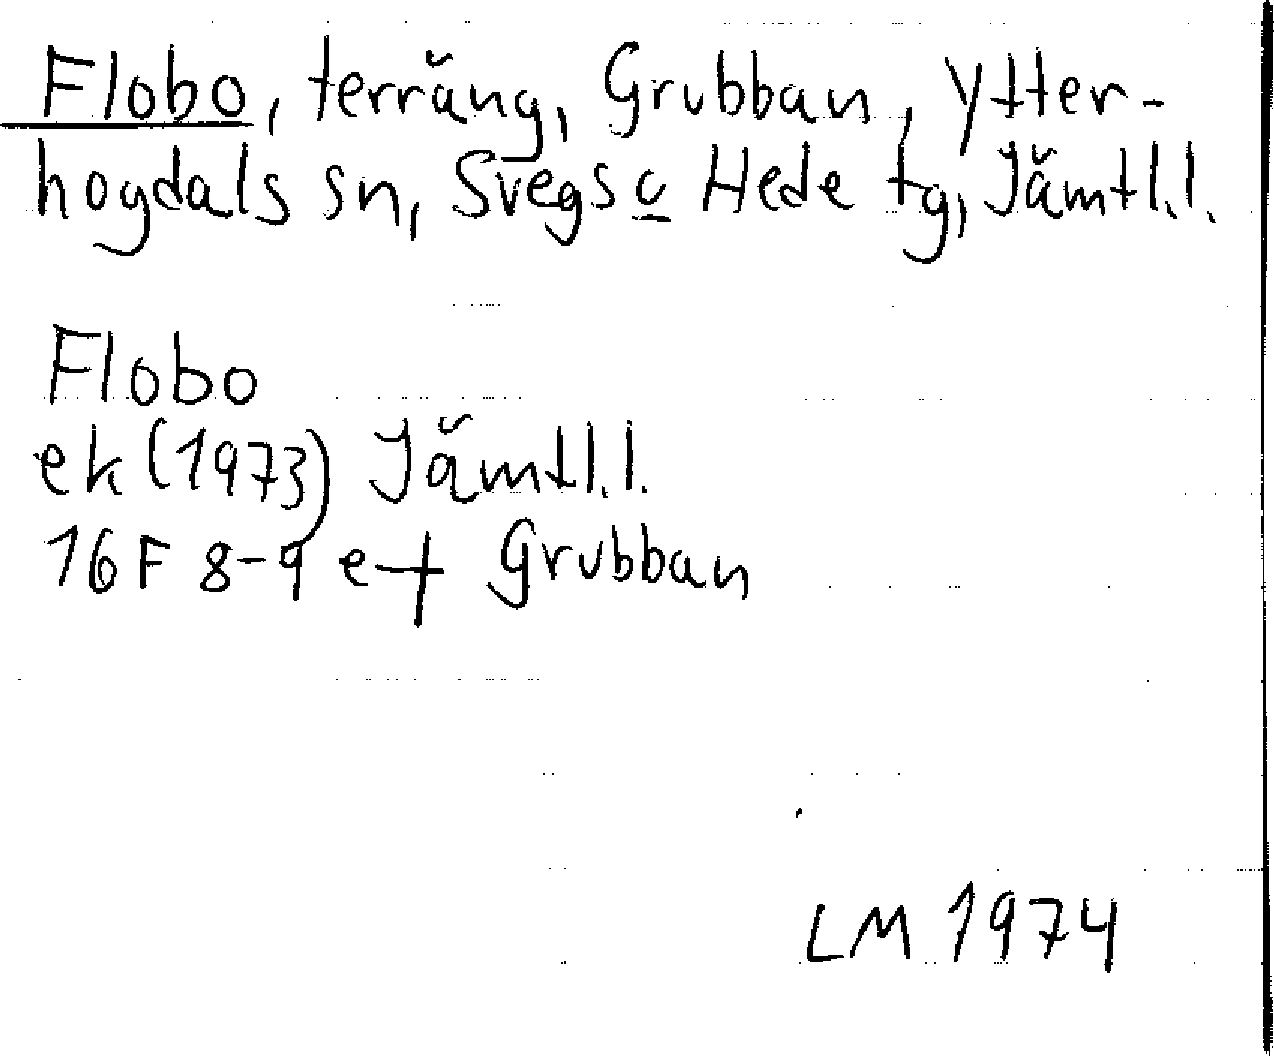 Flobo, terräng, Grubban, Ytter-
hogdals sn, Svegs o Hede tg, Jämtl.l.
Flobo
ek (1973) Jämtl.l.
16F 8-9 e-f Grubban
LM 1974